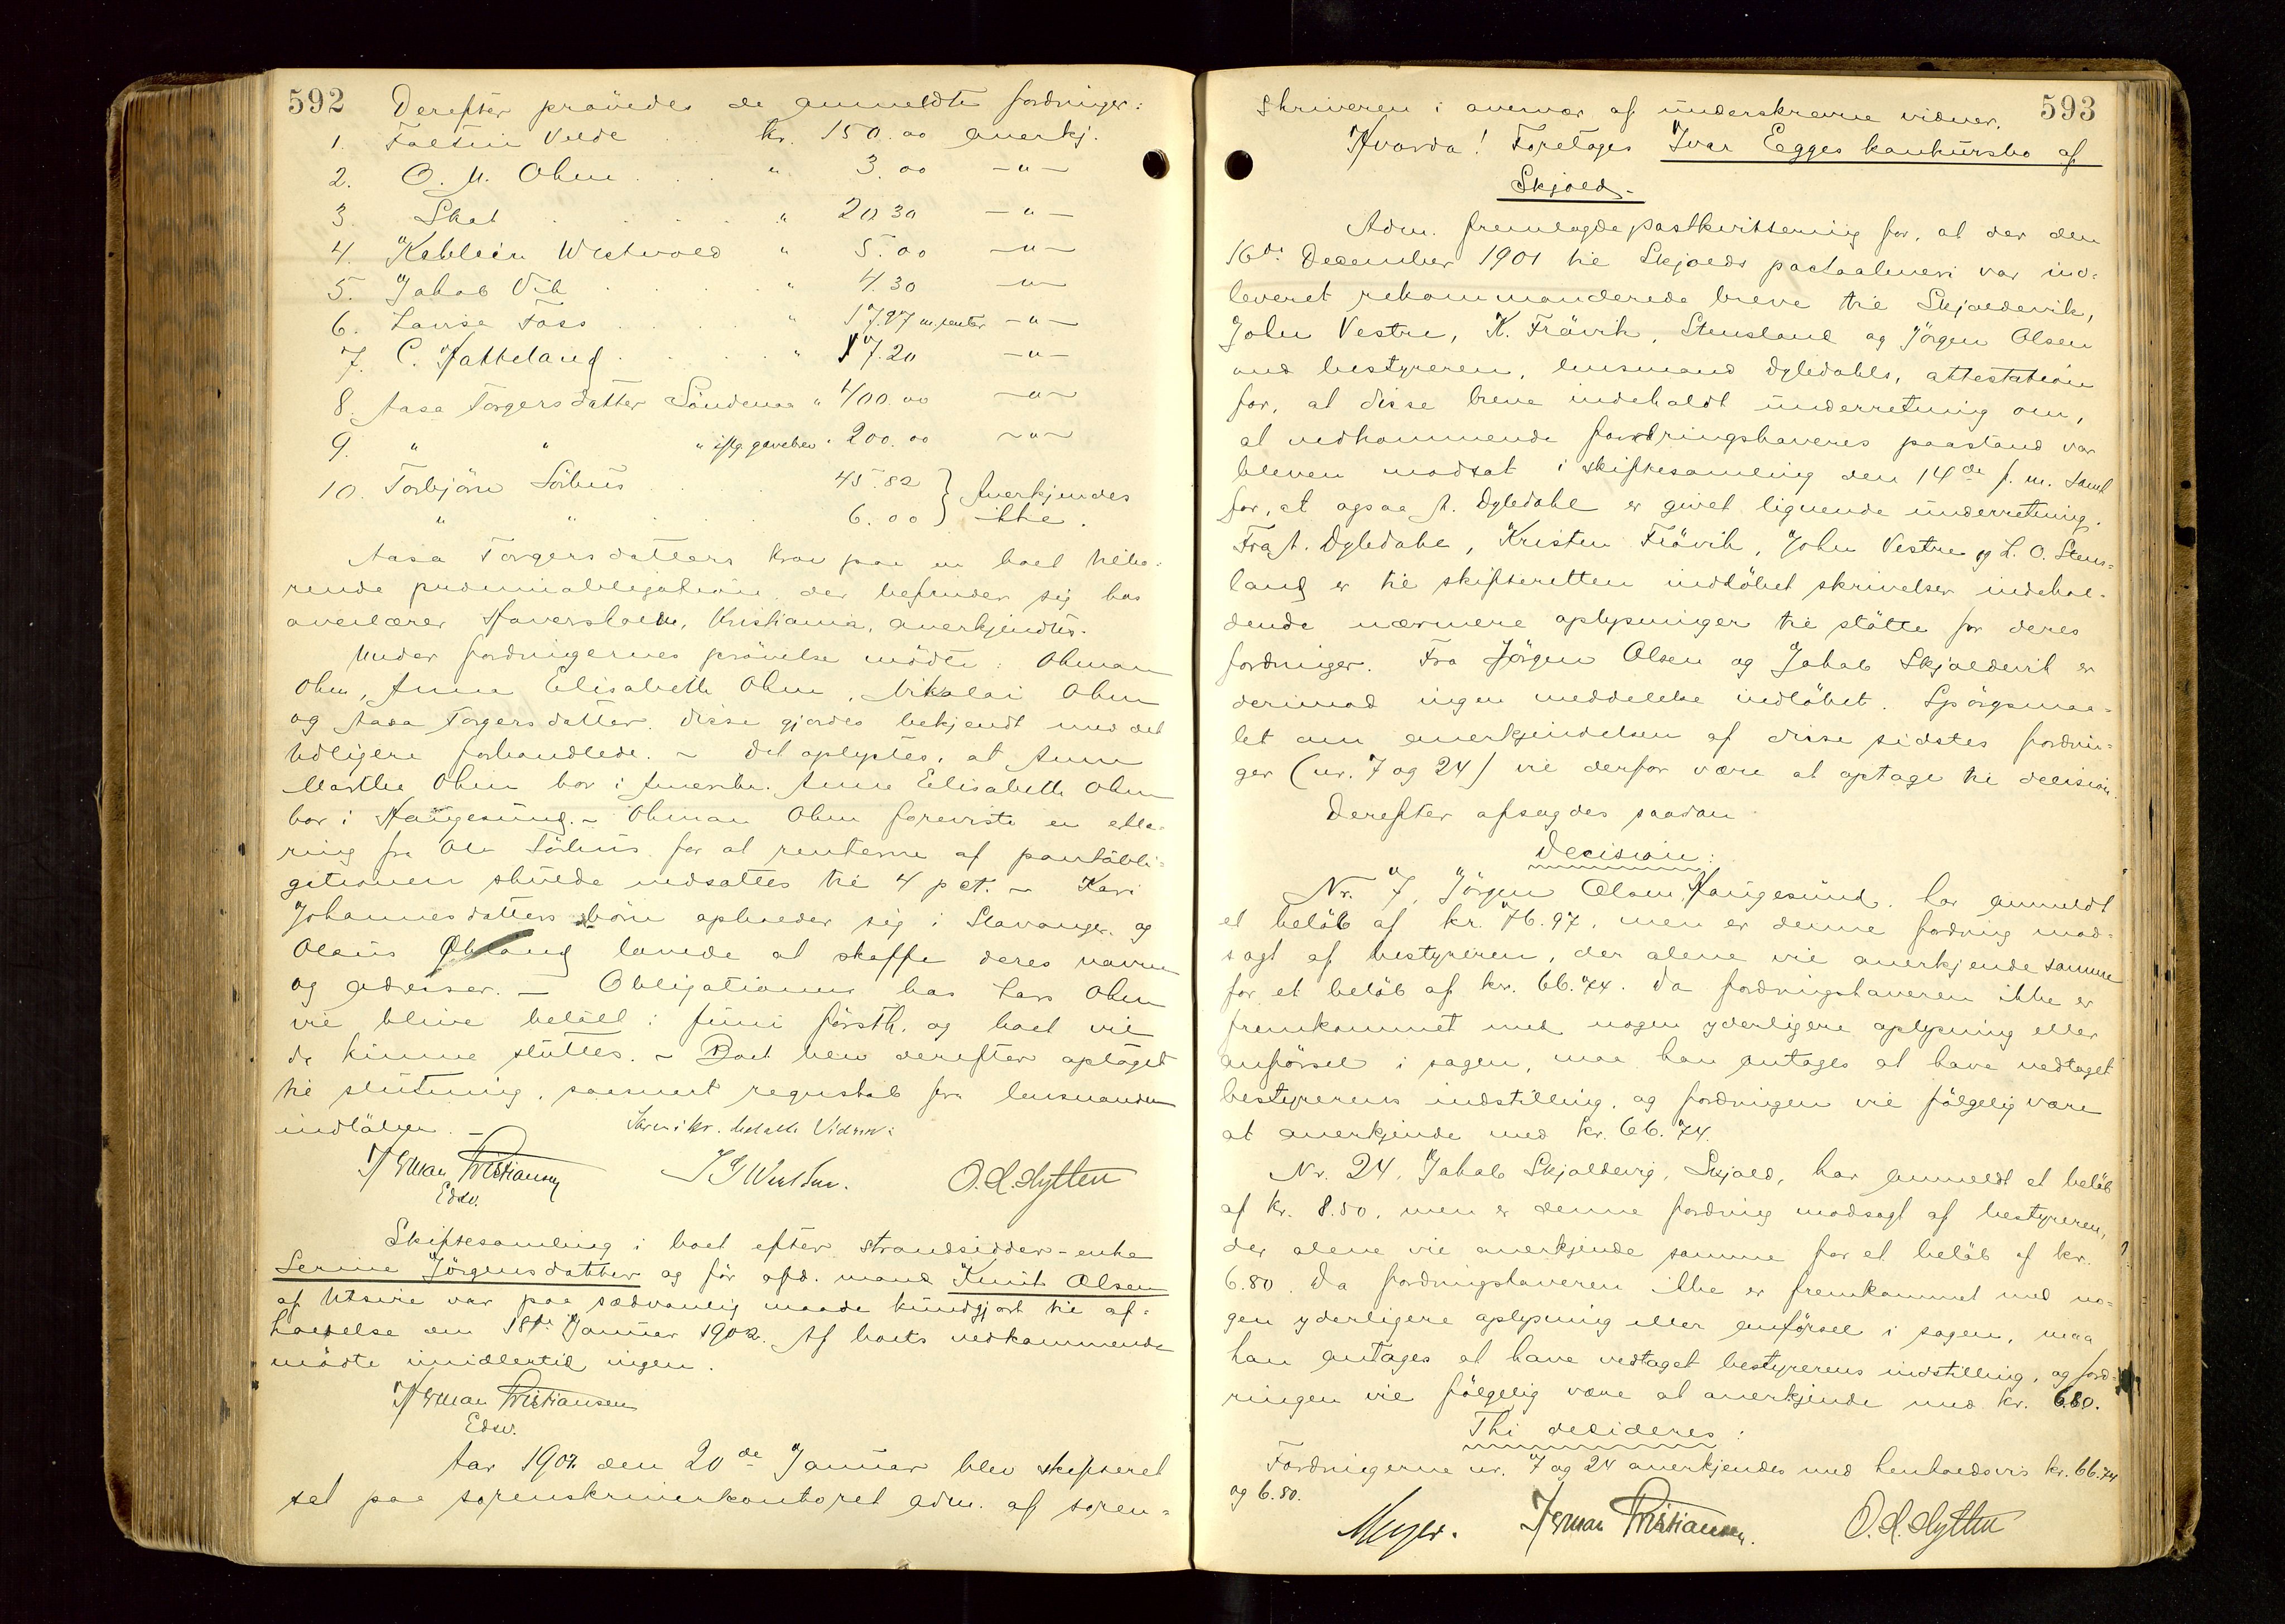 592 Derefter prövedes de anmeldte fordringer:
1. Faltin Velde . . kr. 150.00 anerkj.
2. O. M. Ohm . . . " 3.00 -"-
3. Skat . . . . " 20.30 -"-
4. Kahlein Westvold " 5.00 -"-
5. Jakob Vik . . . . " 4.30 -"-
6. Lavise Foss . . . " 17.97 m. renter -"-
7. C. Hatteland . . . . " 17.20 -"-
8. Aasa Torgersdatter Söndenaa " 400.00 -"-
9. " " " iflg. gavebrev " 200.00 -"-
10. Torbjörn Sörhus . . . 45.82 } Anerkjendes
" " . . . 6.00 } ikke.
Aasa Torgersdatters krav paa en boet tilhö-
rende præmieobligation, der befinder sig hos
overlærer Haversholm, Kristiania, anerkjendtes.
Under fordringernes prövelse mödte: Ohman
Ohm, Anna Elisabeth Ohm, Nikolai Ohm
og Aasa Torgersdatter. Disse gjordes bekjendt med det
tidligere forhandlede. - Det oplystes, at Anne
Marthe Ohm bor i Amerika. Anne Elisabeth Ohm
bor i Haugesund. - Ohman Ohm foreviste en erklæ-
ring fra Ole Sörhus for at renterne af pantobli-
gationen skulde nedsættes til 4 pct. - Kari
Johannesdatters börn opholder sig i Stavanger og
Olaus Økland lovede at skaffe deres navne
og adresser. - Obligationen hos Lars Ohm
vil blive betalt i juni förstk. og boet vil
da kunne sluttes. - Boet blev derefter optaget
til slutning, saasnart regnskab fra lensmanden
indlöber. - Skrivekr. betalte Vidner:
Herman Christiansen J G Westbue. O. L. Lytten
Edsv.
Skiftesamling i boet efter strandsidder-enke
Serine Jörgensdatter og för afd. mand Knut Olsen
af Utsire var paa sædvanlig maade kundgjort til af-
holdelse den 18de Januar 1902. Af boets vedkommende
mödte imidlertid ingen.
Herman Christiansen
Edsv.
Aar 1902 den 20de Januar blev skifteret
sat paa sorenskriverkontoret adm. af soren-
skriveren i overvær af underskrevne vidner. 593
Hvorda! Foretoges Ivar Egges konkursbo af
Skjold.
Adm. fremlagde postkvittering for, at der den
16de December 1901 til Skjolds postaabneri var ind-
leveret rekommanderede breve til Skjoldevik,
John Vestre, K. Frövik, Stensland og Jörgen Olsen
med bestyreren, lensmand Dyledahls, attestation
for, at disse breve indeholdt underretning om,
at vedkommende fordringshaveres paastand var
bleven modsat i skiftesamling den 14de f. m. samt
for, at ogsaa A. Dyledahl er givet lignende underretning.
Fra A. Dyledahl, Kristen Frövik, John Vestre og L. O. Stens-
land er til skifteretten indlöbet skrivelser indehol-
dende nærmere oplysninger til stötte for deres
fordringer. Fra Jörgen Olsen og Jakob Skjoldevik er
derimod ingen meddelelse indlöbet. Spörgsmaa-
let om anerkjendelsen af disse sidstes fordrin-
ger (nr. 7 og 24) vil derfor være at optage til decision.
Derefter afsagdes saadan
Decision:
Nr. 7, Jörgen Olsen, Haugesund, har anmeldt
et belöb af kr. 76.97, men er denne fordring mod-
sagt af bestyreren, der alene vil anerkjende samme
for et belöb af kr. 66.74. Da fordringshaveren ikke er
fremkommet med nogen yderligere oplysning eller
anförsel i sagen, maa han antages at have vedtaget
bestyrerens indstilling, og fordringen vil fölgelig være
at anerkjende med kr. 66.74.
Nr. 24, Jakob Skjoldevig, Skjold, har anmeldt et belöb
af kr. 8.50, men er denne fordring modsagt af bestyreren,
der alene vil anerkjende samme for et belöb af kr.
6.80. Da fordringshaveren ikke er fremkommet med no-
gen yderligere oplysning eller anförsel i sagen, maa
han antages at have vedtaget bestyrerens indstilling, og ford-
ringen vil fölgelig være at anerkjende med kr. 6.80.
Thi decideres:
Fordringerne nr. 7 og 24 anerkjendes med henholdsvis kr. 66.74
og 6.80.
Meyer. Herman Christiansen. O. L. Lytten